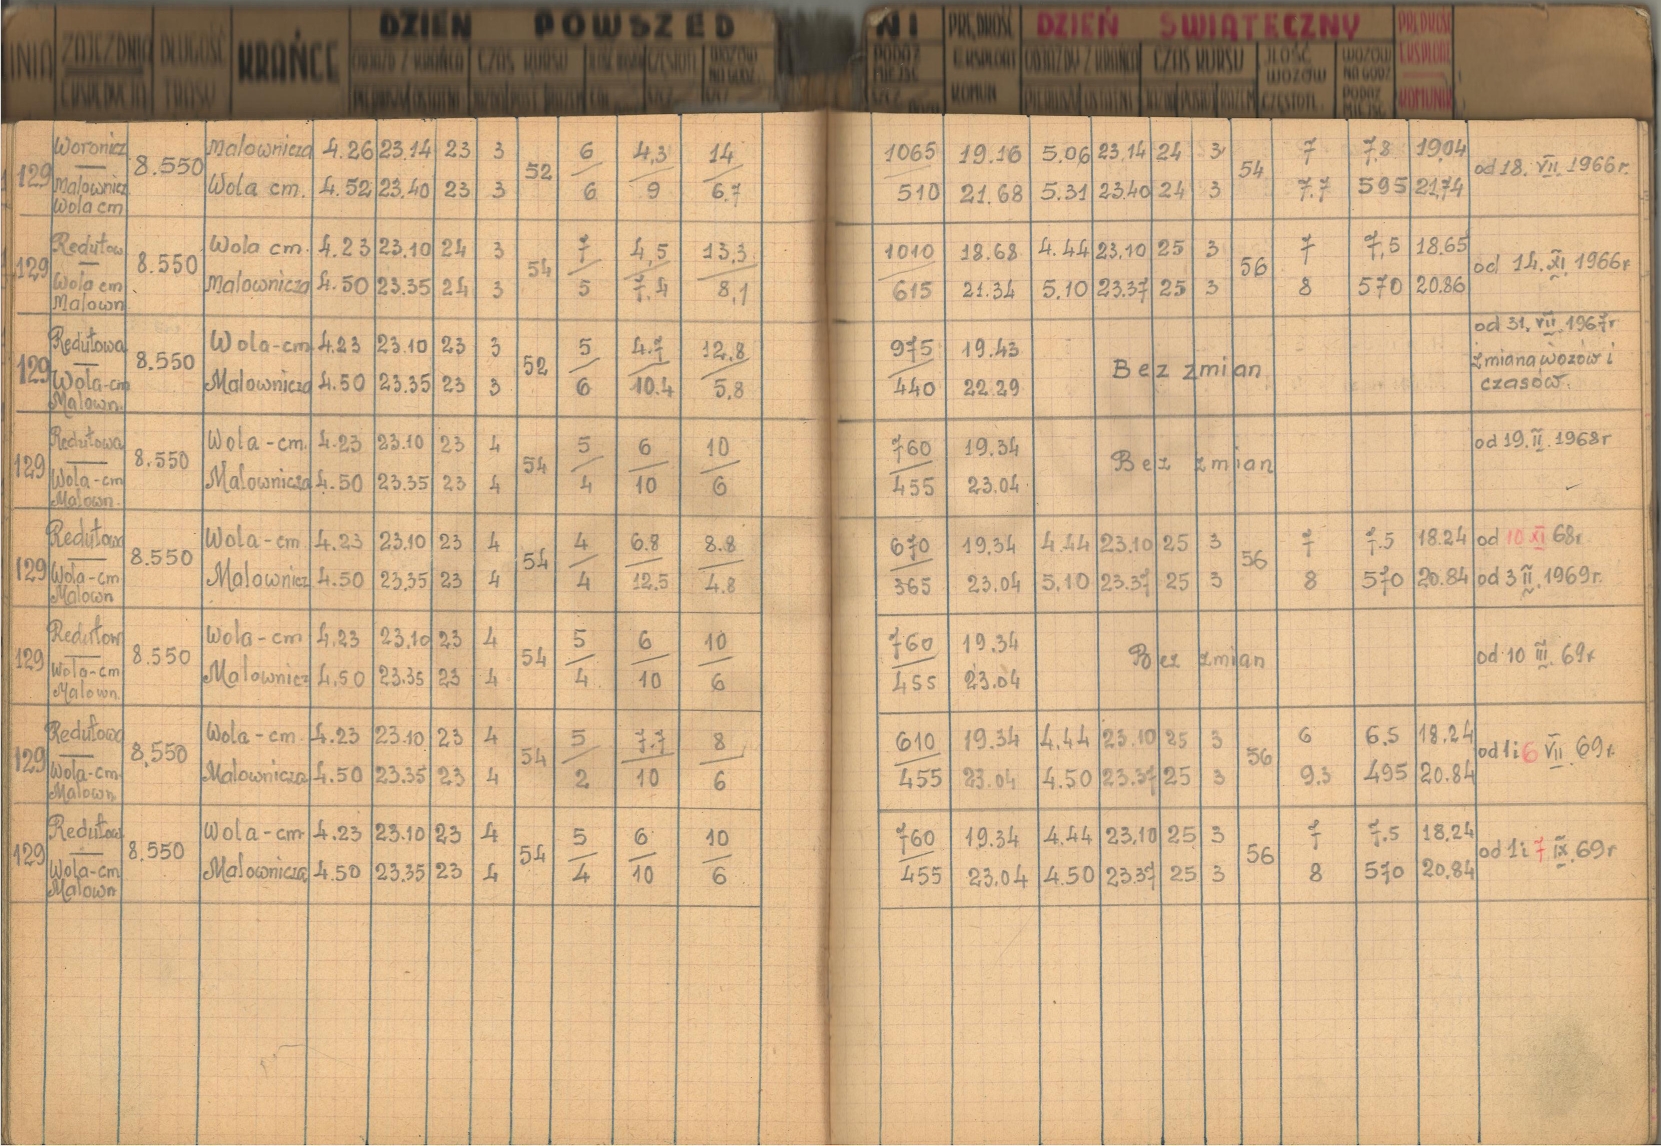 DZIEŃ POWSZED NI PRĘDKOŚĆ DZIEŃ ŚWIĄTECZNY PRĘDKOŚĆ
LINIA ZAJEZDNIA DŁUGOŚĆ KRAŃCE ODJAZD Z KRAŃCA CZAS KURSU CZĘSTOT. PODAŻ MIEJSC EKSPLOAT ODJAZDY Z KRAŃCA CZAS KURSU ILOŚĆ WOZÓW WOZÓW NA GODZ EKSPLOAT
EKSPEDYCJA TRASY PIERWSZY OSTATNI KOMUN PIERWSZY OSTATNI CZĘSTOTL. PODAŻ MIEJSC KOMUNIK
129 Woronicz 8.550 Malownicza 4.26 23.14 23 3 52 6 4,3 14 1065 19.16 5.06 23.14 24 3 54 7 7,8 19.04 od 18. VII. 1966r.
Malownicz Wola cm. 4.52 23.40 23 3 6 9 6.7 510 21.68 5.31 23.40 24 3 7.7 595 21.74
Wola cm
129 Redutow 8.550 Wola cm. 4.23 23.10 24 3 54 7 4,5 13,3 1010 18.68 4.44 23.10 25 3 56 7 7,5 18.65 od 14. XI. 1966r
Wola cm Malownicza 4.50 23.35 24 3 5 7.4 8,1 615 21.34 5.10 23.37 25 3 8 570 20.86
Malown.
129 Redutowa 8.550 Wola-cm 4.23 23.10 23 3 52 5 4.7 12.8 975 19.43 Bez zmian od 31. VII. 1967r
Wola-cm Malownicza 4.50 23.35 23 3 6 10.4 5,8 440 22.29 zmiana wozów i
Malown. czasów.
129 Redutowa 8.550 Wola-cm. 4.23 23.10 23 4 54 5 6 10 760 19.34 Bez zmian od 19. II. 1968r
Wola-cm Malownicza 4.50 23.35 23 4 4 10 6 455 23.04
Malown.
129 Redutowa 8.550 Wola-cm 4.23 23.10 23 4 54 4 6.8 8.8 670 19.34 4.44 23.10 25 3 56 7 7.5 18.24 od 10 XI 68r.
Wola-cm Malownicz 4.50 23.35 23 4 4 12.5 4.8 365 23.04 5.10 23.37 25 3 8 570 20.84 od 3 II. 1969r.
Malown
129 Redutow 8.550 Wola-cm 4.23 23.10 23 4 54 5 6 10 760 19.34 Bez zmian od 10 III. 69r
Wola-cm Malownicz 4.50 23.35 23 4 4 10 6 455 23.04
Malown.
129 Redutowa 8,550 Wola-cm 4.23 23.10 23 4 54 5 7.7 8 610 19.34 4.44 23.10 25 3 56 6 6.5 18.24 od 1 i 6 VII. 69r.
Wola-cm Malownicza 4.50 23.35 23 4 2 10 6 455 23.04 4.50 23.37 25 3 9.3 495 20.84
Malown.
129 Redutow 8.550 Wola-cm 4.23 23.10 23 4 54 5 6 10 760 19.34 4.44 23.10 25 3 56 7 7.5 18.24 od 1 i 7 IX. 69r
Wola-cm Malownicza 4.50 23.35 23 4 4 10 6 455 23.04 4.50 23.37 25 3 8 570 20.84
Malown